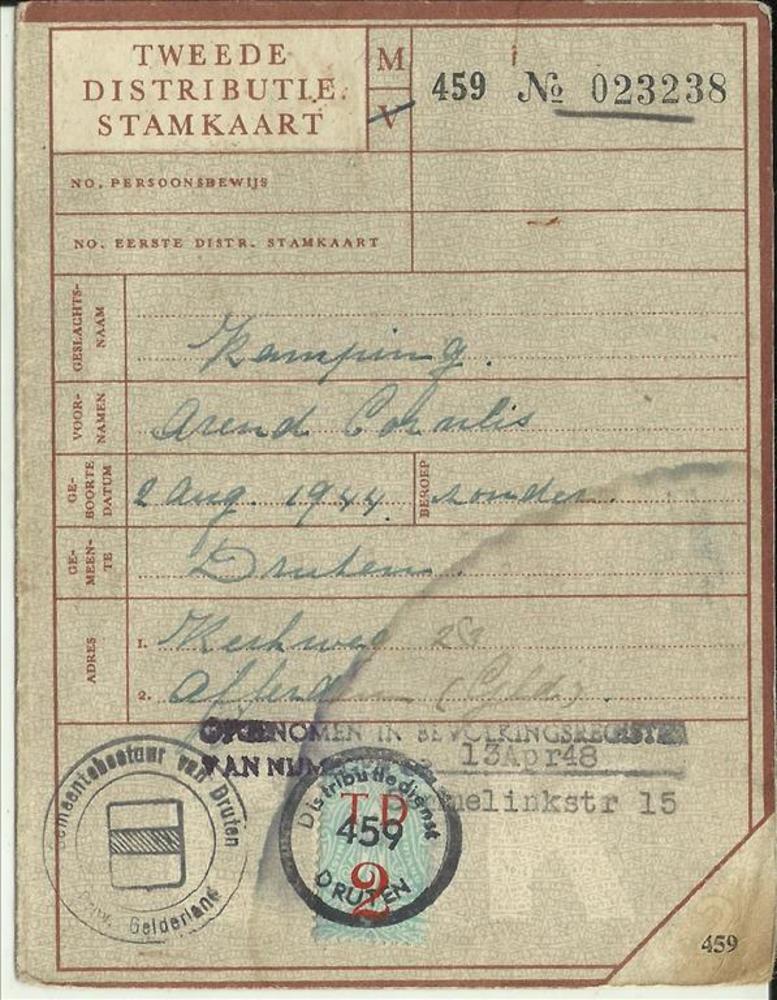 TWEEDE
DISTRIBUTIE
STAMKAART
M
V
459 № 023238
NO. PERSOONSBEWIJS
NO. EERSTE DISTR. STAMKAART
GESLACHTS-
NAAM
Kamping.
VOOR-
NAMEN
Arend Cornelis
GE-
BOORTE
DATUM
2 Aug. 1944.
BEROEP
zonder.
GE-
MEEN-
TE
Druten.
ADRES
1. Kerkweg
2. Afferden (Gld).
OPGENOMEN IN BEVOLKINGSREGISTER
VAN 13Apr48
melinkstr 15
Gemeentebestuur van Druten
Gelderland
Distributiedienst
TD
459
2
DRUTEN
459